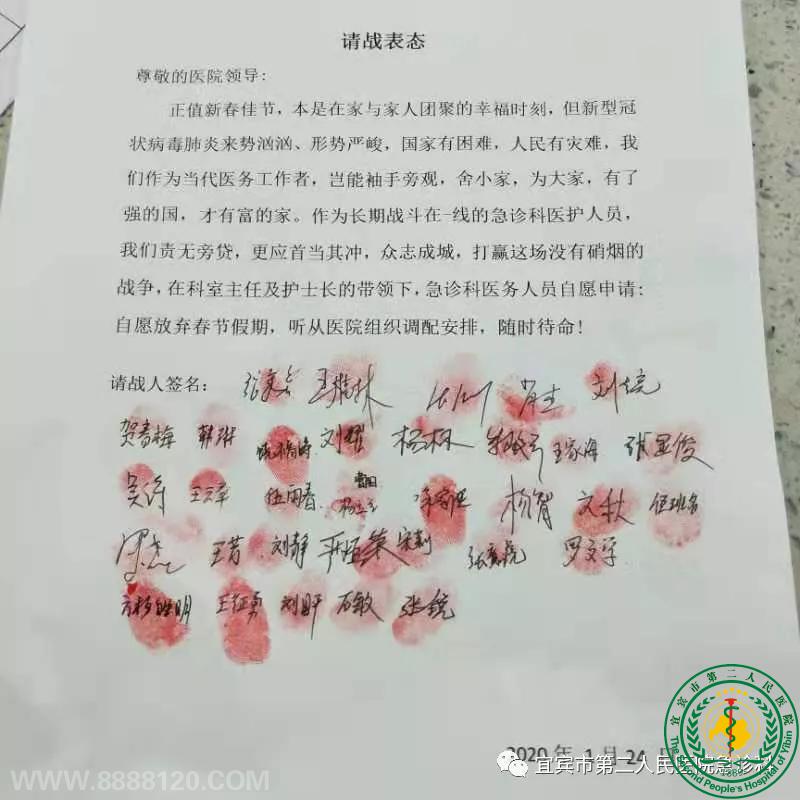 请战表态
尊敬的医院领导:
正值新春佳节，本是在家与家人团聚的幸福时刻，但新型冠
状病毒肺炎来势汹汹、形势严峻，国家有困难，人民有灾难，我
们作为当代医务工作者，岂能袖手旁观，舍小家，为大家，有了
强的国，才有富的家。作为长期战斗在一线的急诊科医护人员，
我们责无旁贷，更应首当其冲，众志成城，打赢这场没有硝烟的
战争，在科室主任及护士长的带领下，急诊科医务人员自愿申请:
自愿放弃春节假期，听从医院组织调配安排，随时待命!
请战人签名: 肖杰
贺春梅 韩琳 刘耀 杨林 王家海 张显俊
吴涛 伍雨春 杨智 文秋 伍班名
王芳 刘静 罗文宇
王征勇 石敏 张锐
2020 年 1 月 24 日
宜宾市第二人民医院急诊科
宜宾市第二人民医院
The Second People's Hospital of Yibin
1889
WWW.8888120.COM